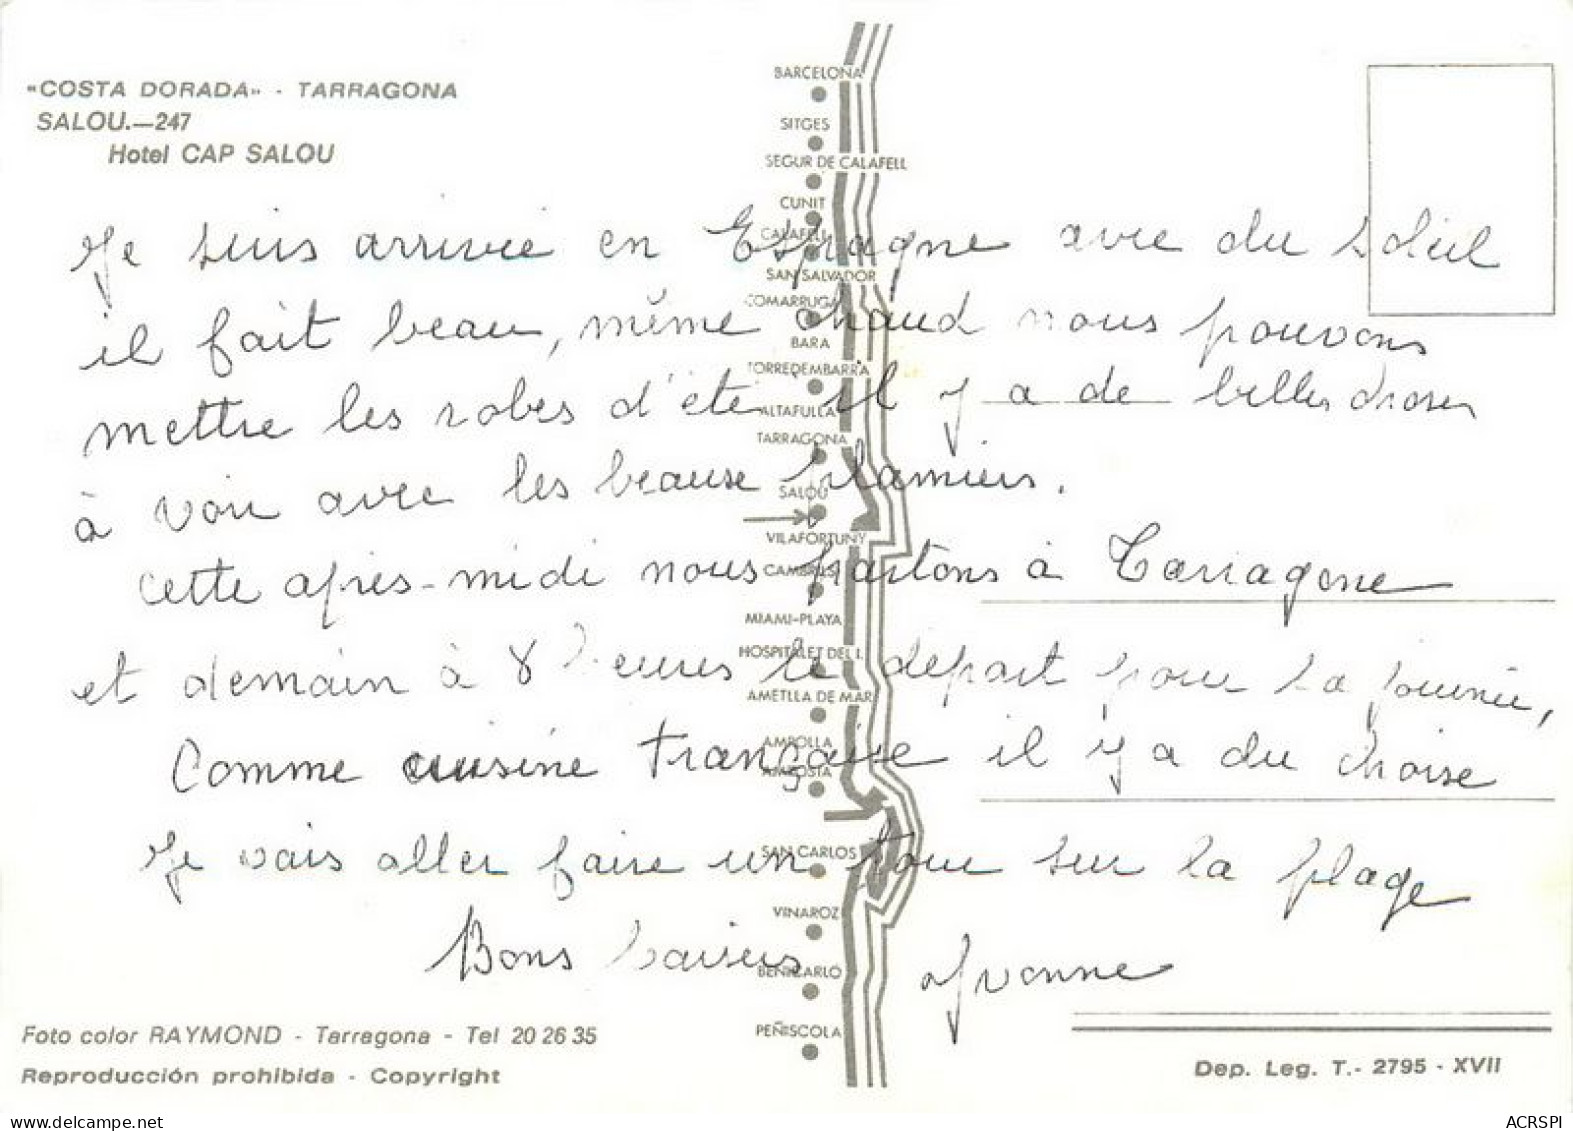 «COSTA DORADA» - TARRAGONA
SALOU.—247
Hotel CAP SALOU
Je suis arrivée en Espagne avec du soleil
il fait beau, même chaud nous pouvons
mettre les robes d'été il y a de belles choses
à voir avec les beause
cette après-midi nous partons à Tarragone
et demain à 8 heures le départ pour la journée,
Comme cuisine française il y a du choise
Je vais aller faire un tour sur la plage
Bons baisers Yvonne
BARCELONA
SITGES
SEGUR DE CALAFELL
CUNIT
CALAFELL
SAN SALVADOR
COMARRUGA
BARA
TORREDEMBARRA
ALTAFULLA
TARRAGONA
SALOU
VILAFORTUNY
CAMBRILS
MIAMI-PLAYA
HOSPITALET DEL I.
AMETLLA DE MAR
AMPOLLA
AMPOSTA
SAN CARLOS
VINAROZ
BENICARLÓ
PEÑISCOLA
Foto color RAYMOND - Tarragona - Tel 20 26 35
Reproducción prohibida - Copyright
Dep. Leg. T.- 2795 - XVII
ACRSPI